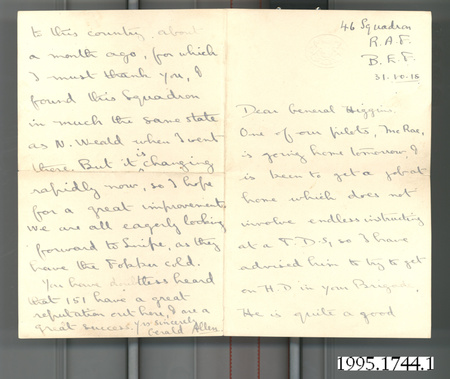 46 Squadron
R.A.F.
B.E.F.
31.10.18
Dear General Higgins
One of our pilots, McRae,
is going home tomorrow, &
is keen to get a job at
home which does not
involve endless instructing
at a T.D.S, so I have
advised him to try to get
on H.D in your Brigade.
He is quite a good
to this country about
a month ago, for which
I must thank you, I
found this Squadron
in much the same state
as N. Weald when I went
there. But it is changing
rapidly now, so I hope
for a great improvement,
we are all eagerly looking
forward to Snipe, as they
have the Fokker cold.
You have doubtless heard
that 151 have a great
reputation out here, & are a
great success. Yrs sincerely
Gerald Allen
1995.1744.1